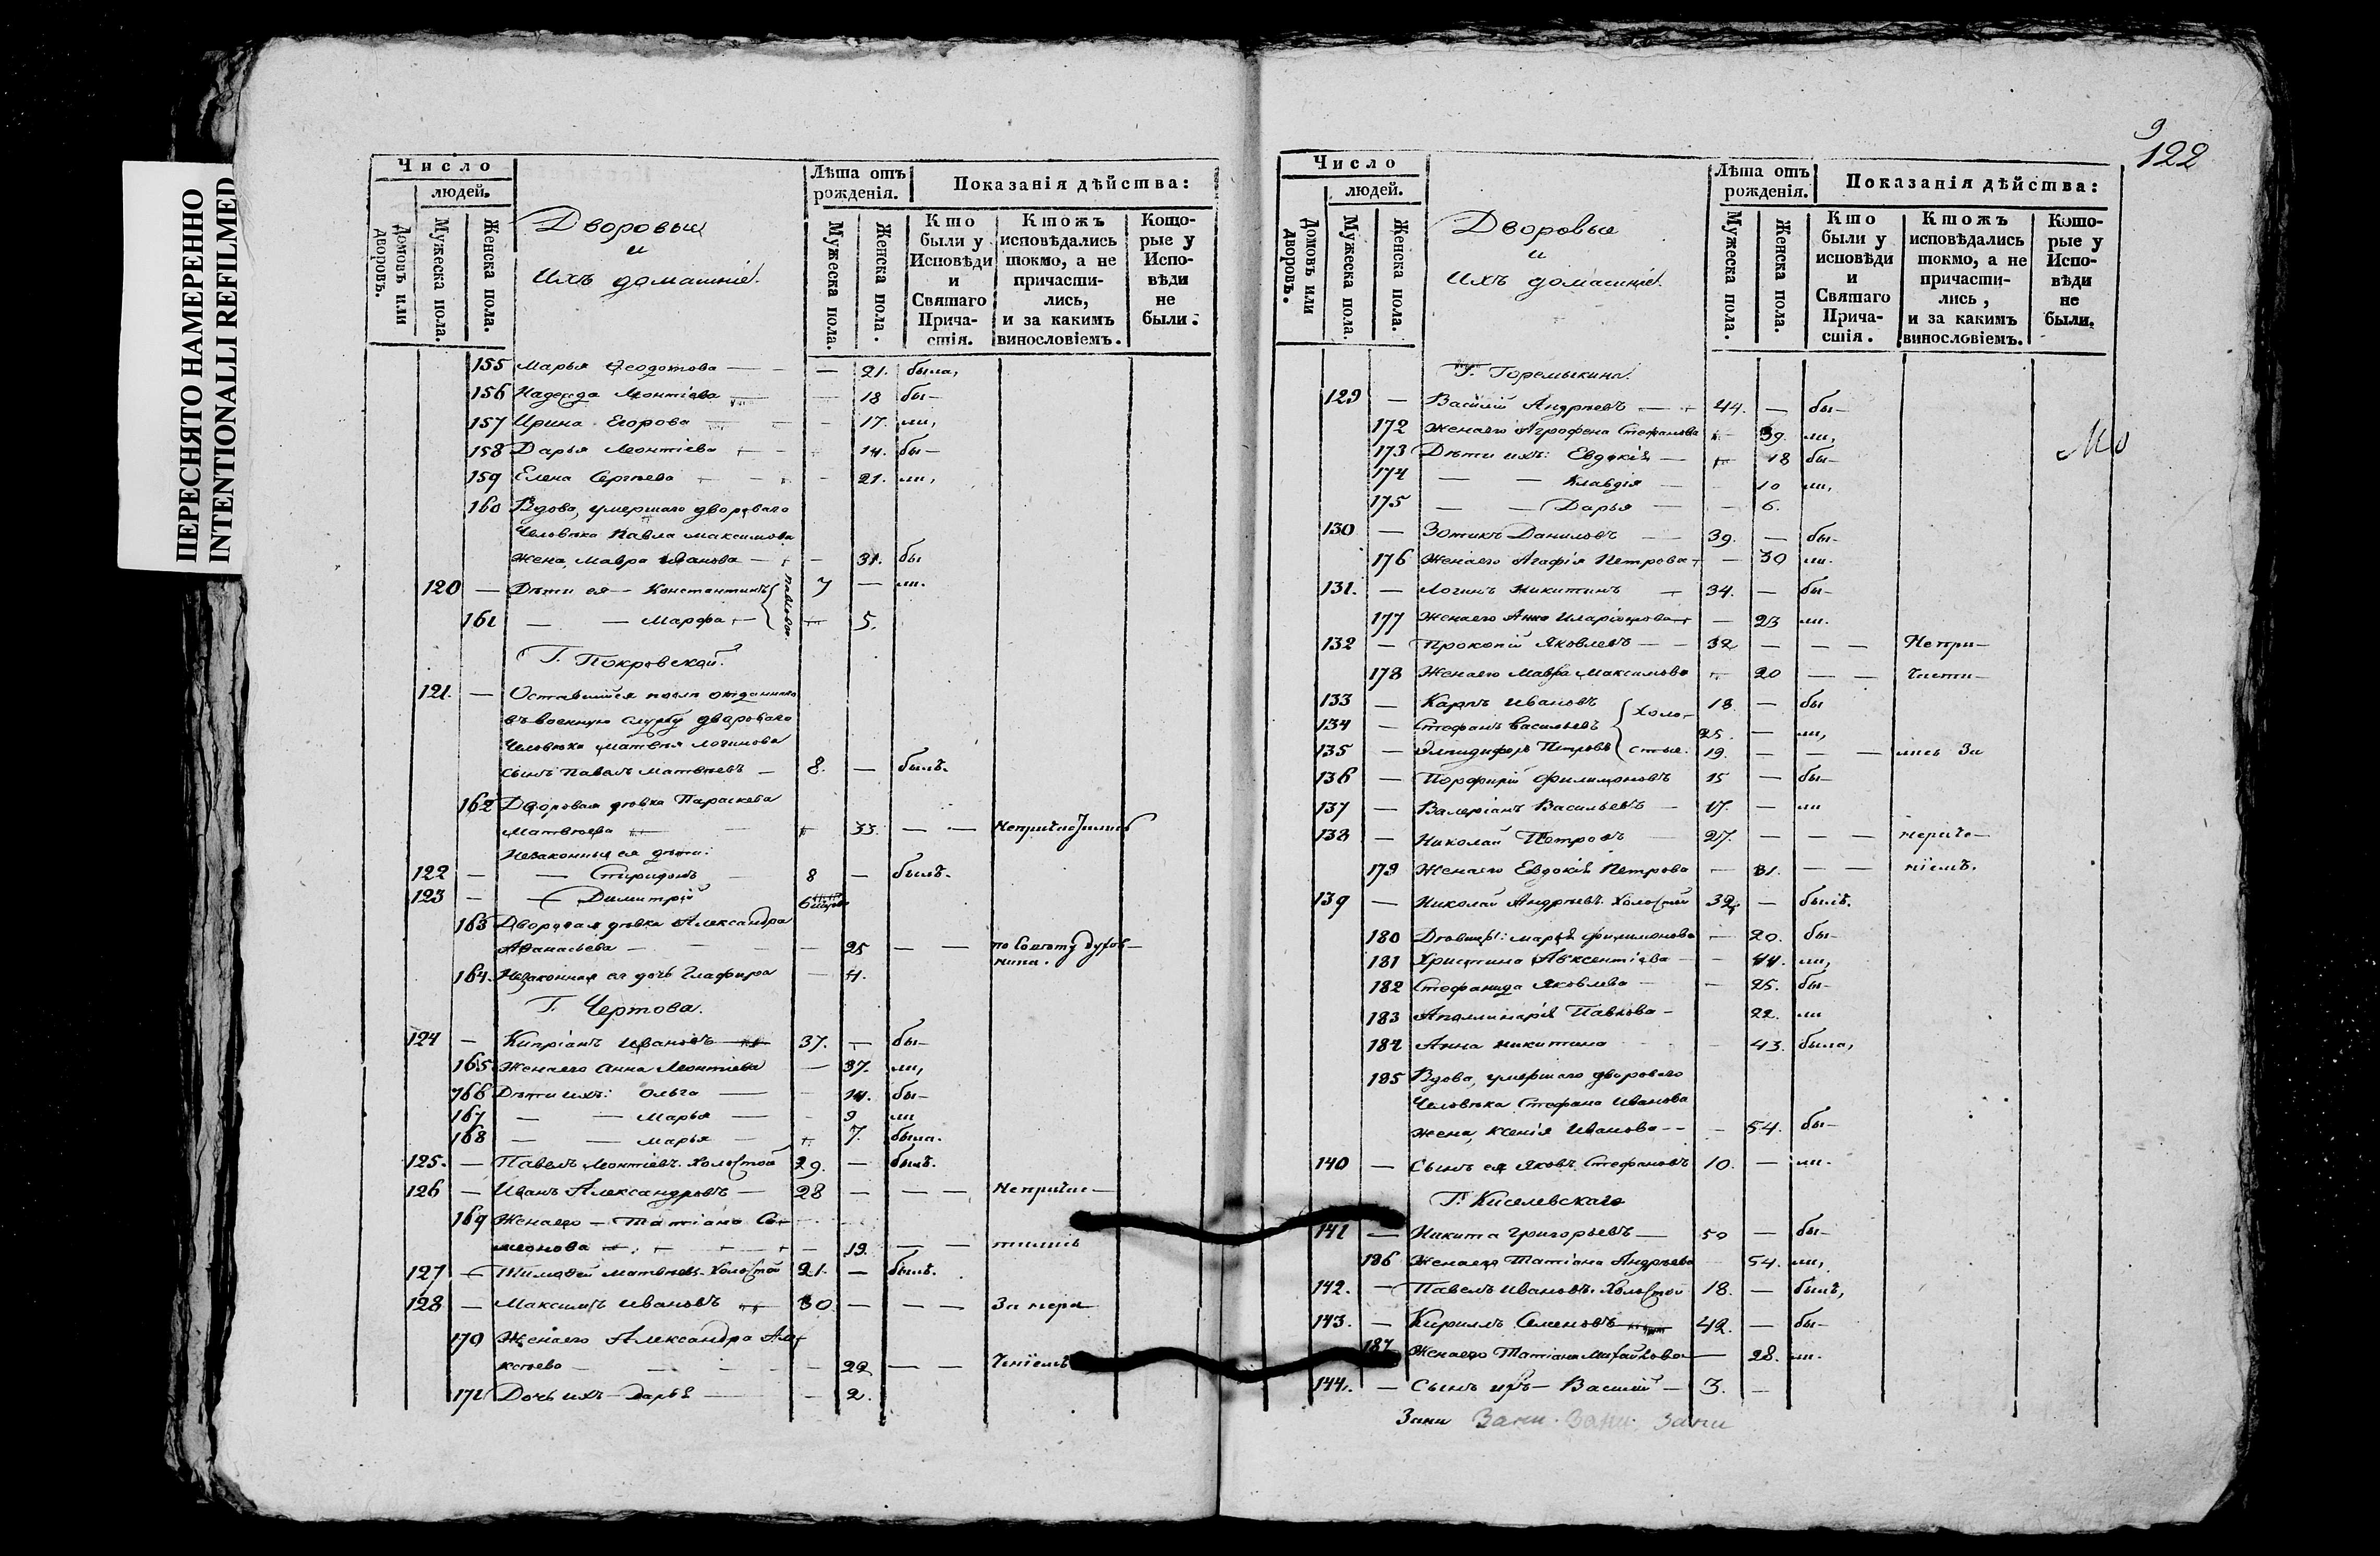 ПЕРЕСНЯТО НАМЕРЕННО
INTENTIONALLI REFILMED
Число
людей.
Домовъ или дворовъ.
Мужеска пола.
Женска пола.
Дворовые
и
ихъ домашніе.
Лѣта отъ рожденія.
Мужеска пола.
Женска пола.
Показанія дѣйства:
Кто были у Исповѣди и Святаго Причастія.
Ктожъ исповѣдались токмо, а не причастились, и за какимъ винословіемъ.
Которые у Исповѣди не были.
155 Марья Ѳеодотова — — 21. была,
156 Надежда Леонтіева — 18 бы—
157 Ирина Егорова — 17. ли,
158 Дарья Леонтіева — 14. бы—
159 Елена Сергѣева — 21. ли,
160 Вдова, умершаго двороваго
человѣка Павла Максимова
жена, Мавра Иванова — 31. бы
120 — Дѣти ея — Константинъ 7 — ли.
Павловы.
161 — — Марфа — 5.
Г. Покровской.
121. — Оставшійся послѣ отданнаго
въ военную службу двороваго
человѣка Матвѣя Логинова
сынъ Павелъ Матвѣевъ — 8. — былъ.
162 Дворовая дѣвка Параскева
Матвѣева — 33. — — Непричастилась
Незаконныя ея дѣти:
122 — — Спиридонъ 8 — былъ.
123 — — Димитрій 6
163 Дворовая дѣвка Александра
Аѳанасьева — — 25 — — по совѣту духов—
ника.
164. Незаконная ея дочь Глафира — 4.
Г. Чертова.
124 — Кипріанъ Ивановъ — 37. — бы—
165 Жена его Анна Леонтіева — 37. ли,
166 Дѣти ихъ: Ольга — 14. бы—
167 — — Марья — 9 ли
168 — — Марья — 7. была.
125. — Павелъ Леонтіевъ. холостой 29. — былъ.
126 — Иванъ Александровъ — 28 — — — Непричас—
169 Жена его — Татіана Си—
меонова — 19. — — тились
127 — Тимоѳей Матвѣевъ. холостой 21. — былъ.
128 — Максимъ Ивановъ 30 — — — За нера
170 Жена его Александра Але—
ксѣева — 22 — — ченіемъ
171 Дочь ихъ — Дарья — 2.
9
122
Число
людей.
Домовъ или дворовъ.
Мужеска пола.
Женска пола.
Дворовые
и
ихъ домашніе.
Лѣта отъ рожденія.
Мужеска пола.
Женска пола.
Показанія дѣйства:
Кто были у исповѣди и Святаго Причастія.
Ктожъ исповѣдались токмо, а не причастились, и за какимъ винословіемъ.
Которые у Исповѣди не были.
Г. Горемыкина.
129 — Василій Андреевъ — 44. — бы—
172 Жена его Агрофена Стефанова — 39. ли,
173 Дѣти ихъ: Евдокія — 18 бы—
174 — — Клавдія — 10 ли,
175 — — Дарья — 6.
130 — Зотикъ Даниловъ 39. — бы—
176 Жена его Агафія Петрова — 30 ли.
131. — Логинъ Никитинъ 34. — бы—
177 Жена его Анна Иларіонова — 23 ли.
132 — Прокопій Яковлевъ — 32 — — — Непри—
178 Жена его Мавра Максимова 20 — — части—
133 — Карпъ Ивановъ 18 — бы
134 — Стефанъ Васильевъ 25. — ли,
135 — Епидифоръ Петровъ 19. — — — лись За
Холостые.
136 — Порфирій Филимоновъ 15 — бы—
137 — Валеріанъ Васильевъ — 17. — ли
138 — Николай Петровъ 27. — — — нерače—
179 Жена его Евдокія Петрова — 31. — — ніемъ.
139 — Николай Андреевъ. холостой 32 — былъ.
180 Дѣвицы: Марья Филимонова — 20. бы—
181 Христина Авксентіева — 44. ли,
182 Стефанида Яковлева — 25. бы—
183 Аполлинарія Павлова — 22. ли
184 Анна Никитина — 43. была,
185 Вдова, умершаго двороваго
человѣка Стефана Иванова
жена, Ксенія Иванова — 54. бы—
140 — Сынъ ея Яковъ Стефановъ 10. — ли.
Г. Киселевскаго
141 — Никита Григорьевъ — 50 — бы—
186 Жена его Татіана Андреева 54. ли,
142. — Павелъ Ивановъ. холостой 18. — былъ,
143. — Кириллъ Семеновъ 42. — бы—
187 Жена его Татіана Михайлова — 28. ли.
144. — Сынъ ихъ — Василій — 3. —